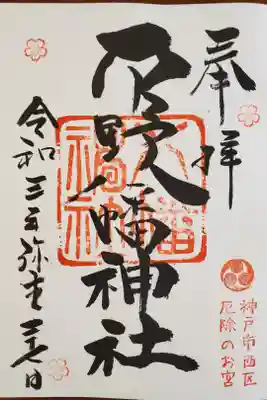 奉拝
野八幡神社
令和三年弥生
日
神戸市西区
厄除のお宮